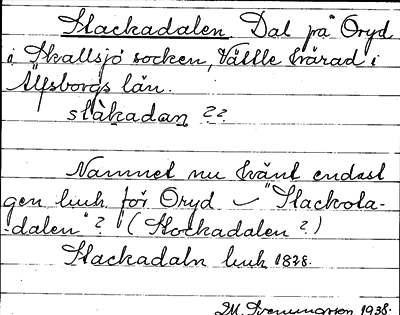 Slackadalen Dal på Öryd
i Skallsjö socken, Vättle härad i
Älfsborgs län.
slàkadan ??
Namnet nu känt endast
gen luuk för Öryd ✓ "Slackola-
-dalen"? (Stockadalen?)
Slackadaln luuk 1828.
Svenungsson 1938.